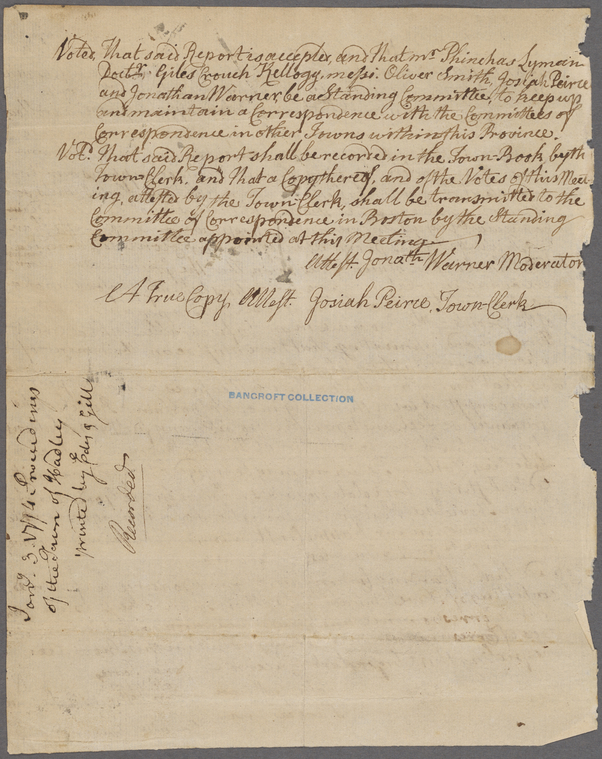 Voted, That said Report is accepted, and that mr. Phinehas Lyman
Doctr. Giles Crouch Kellogg, messi. Oliver Smith, Josiah Peirce
and Jonathan Warner be a Standing Committee, to keep up
and maintain a Correspondence with the Committees of
Correspondence in other Towns within this Province.
Votd. That said Report shall be recorded in the Town Book by th
Town-Clerk, and that a Copy thereof, and of the Votes of this Mee-
ing, attested by the Town-Clerk, shall be transmitted to the
Committee of Correspondence in Boston by the Standing
Committee appointed at this Meeting
Attest. Jonath Warner Moderator
A True Copy, Attest. Josiah Peirce, Town-Clerk
BANCROFT COLLECTION
Jany. 3. 1774 Proceedings
of the Town of Hadley
printed by Edes & Gill
Recorded